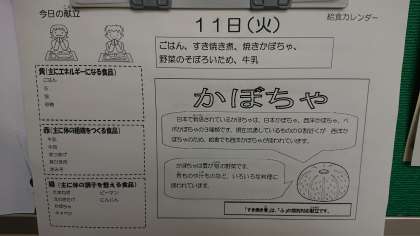 今日の献立
11日(火)
給食カレンダー
ごはん、すき焼き煮、焼きかぼちゃ、
野菜のそぼろいため、牛乳
黄(主にエネルギーになる食品)
ごはん
赤(主に体の組織をつくる食品)
牛乳
緑(主に体の調子を整える食品)
たまねぎ
ピーマン
えのきたけ
にんじん
かぼちゃ
キャベツ
かぼちゃ
日本で栽培されているかぼちゃは、日本かぼちゃ、西洋かぼちゃ、ペ
ポかぼちゃの3種類です。現在流通しているものの9割近くが
ため、給食でも西洋かぼちゃが使われています。
かぼちゃは夏が旬の野菜です。
煮ものや汁ものなど、いろいろな料理に
使われています。